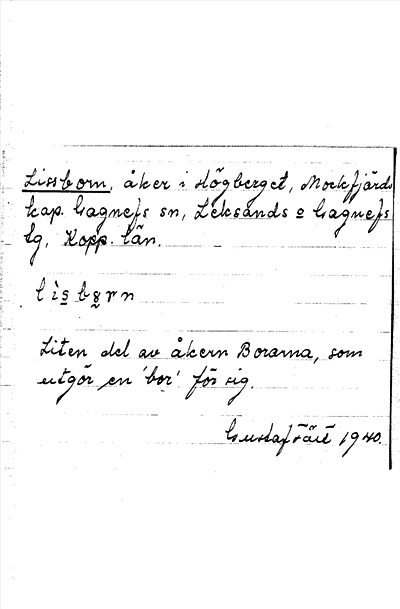 Lissborn, åker i Högberget, Mockfjärds
kap. Gagnefs sn, Leksands o Gagnefs
tg, Kopp. län.
Liten del av åkern Borarna, som
utgör en 'bor' för sig.
Gustaf 1940.